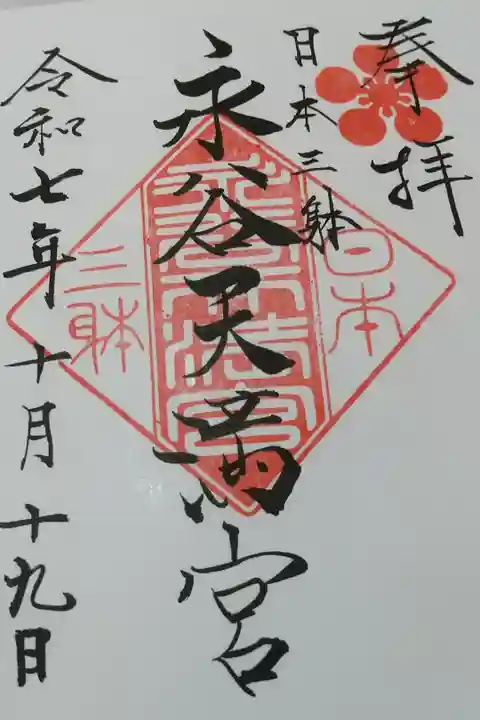 奉拝
日本三躰
永谷天満宮
令和七年十月十九日
日本
三躰
永谷天満宮